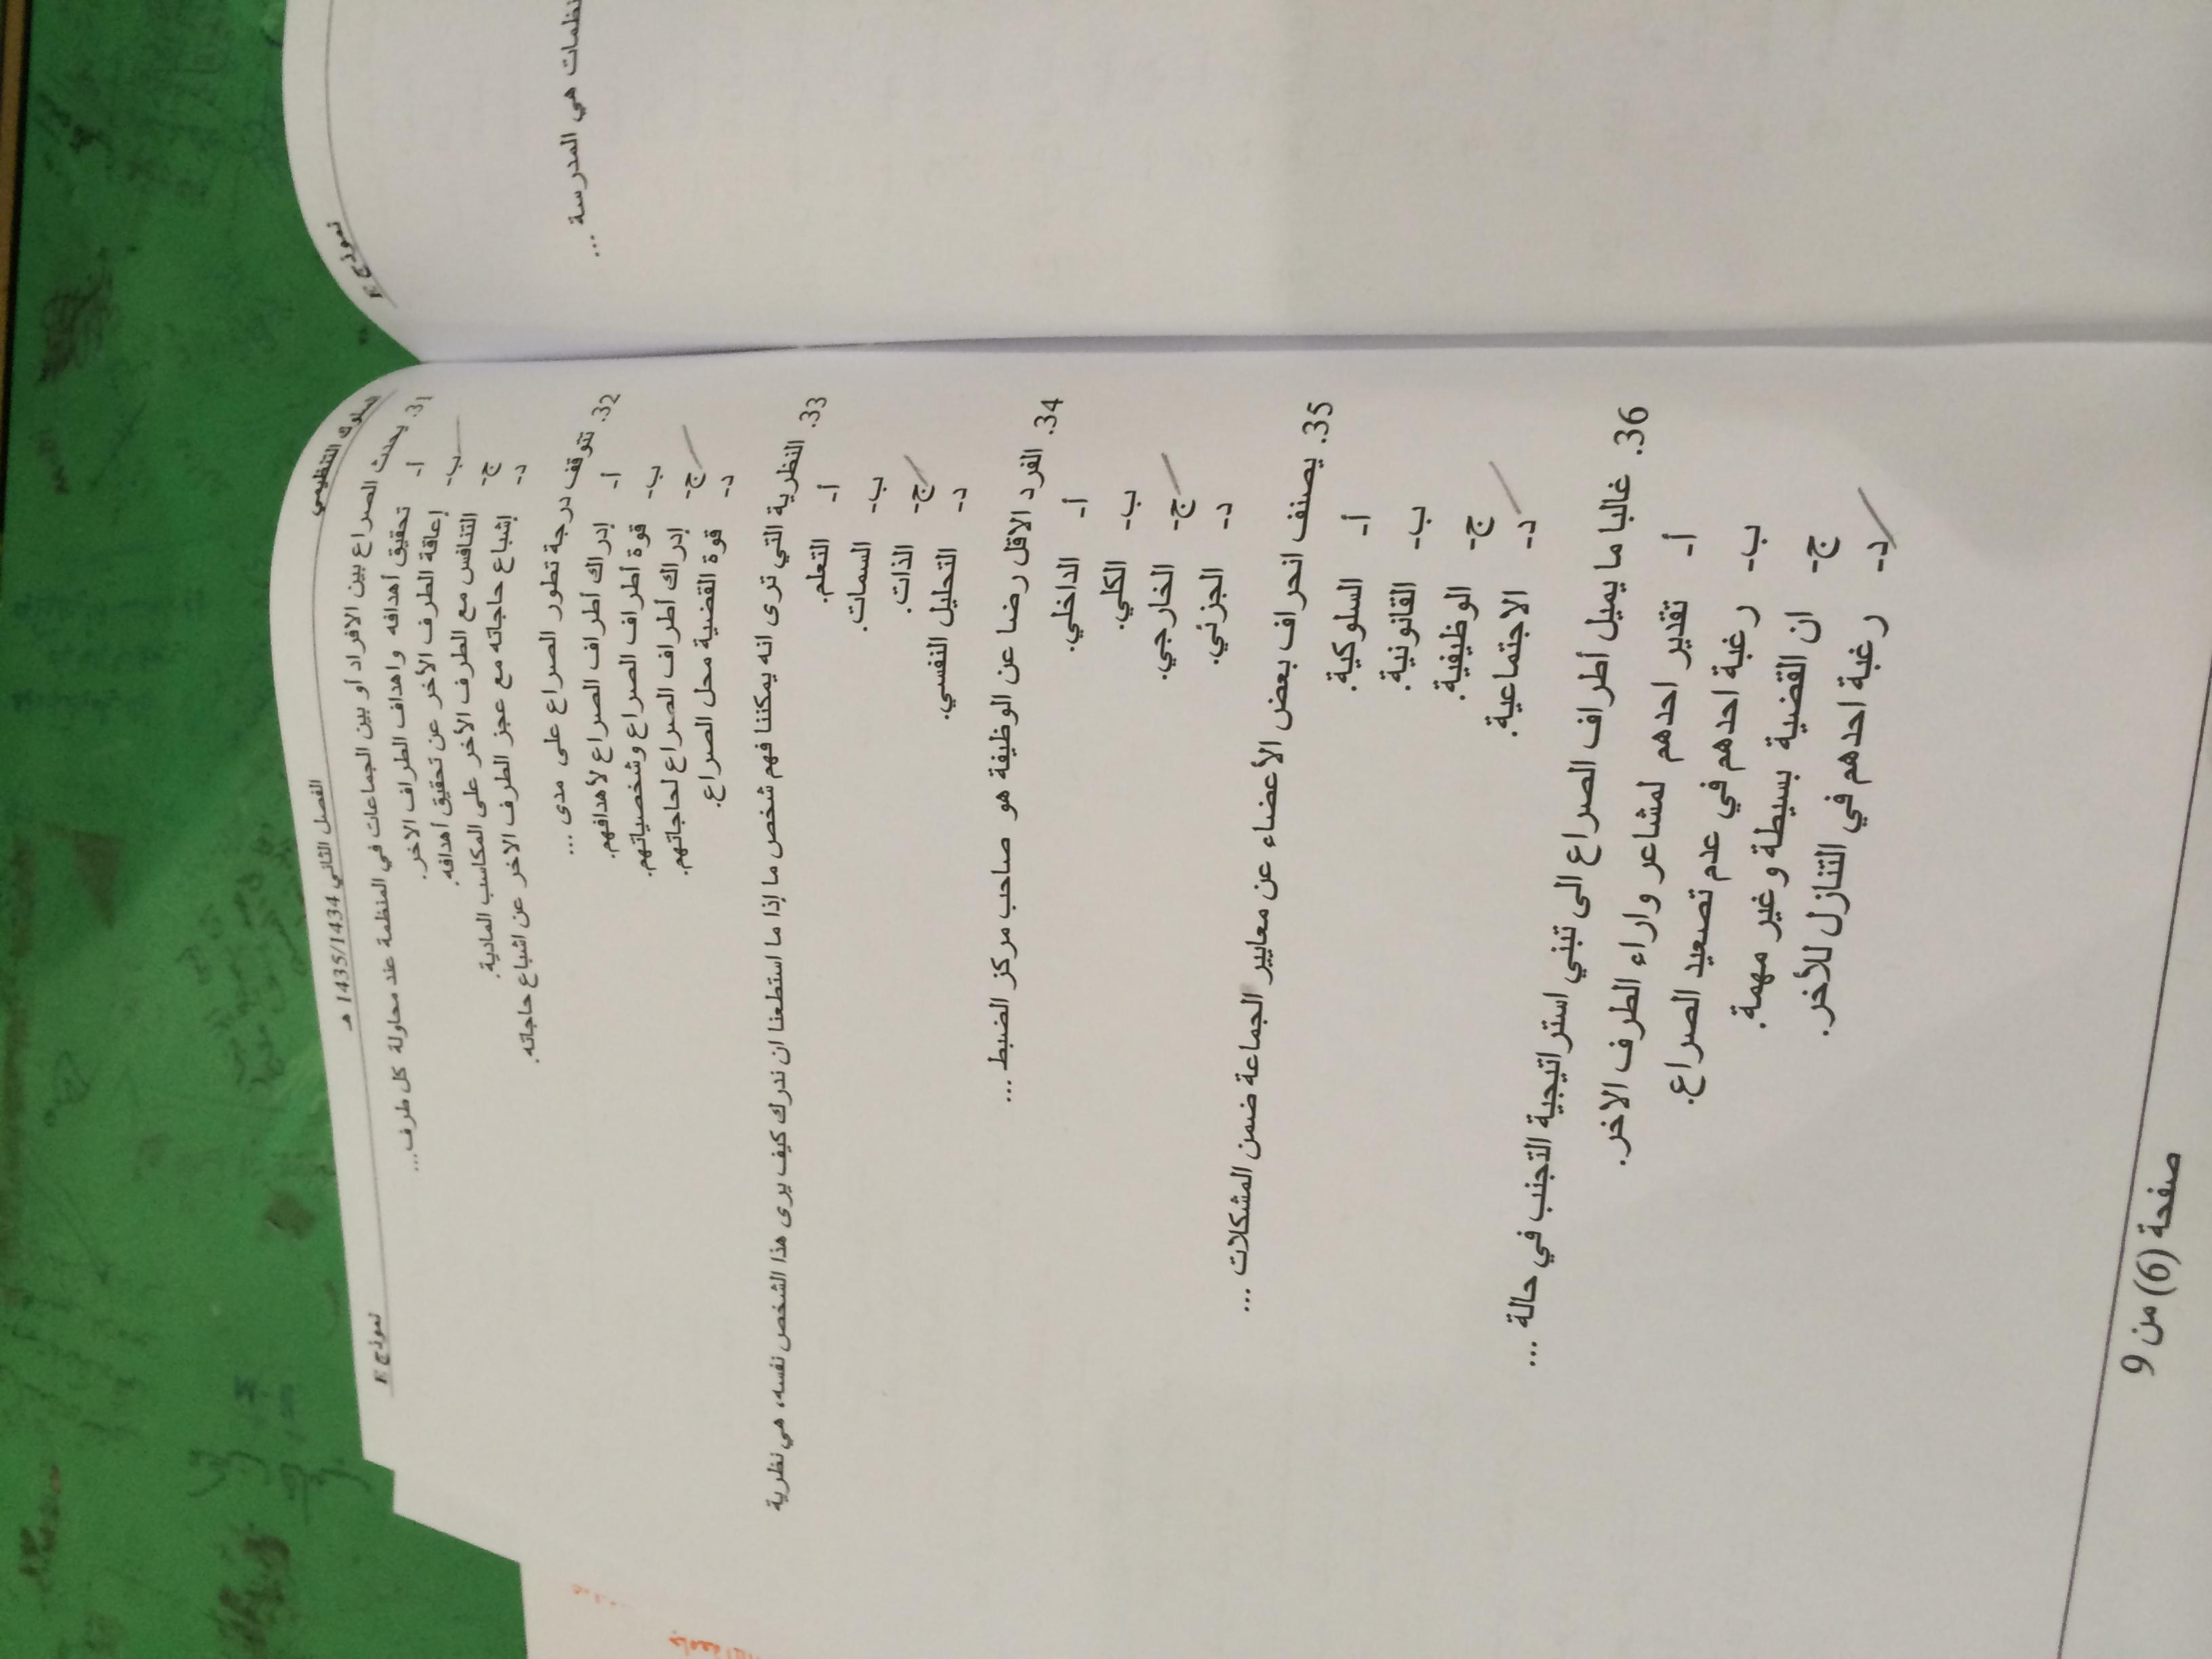 السلوك التنظيمي
الفصل الثاني 1435/1434 هـ
نموذج F
31. يحدث الصراع بين الافراد او بين الجماعات في المنظمة عند محاولة كل طرف...
أ- تحقيق أهدافه واهداف الطراف الاخر.
ب- إعاقة الطرف الأخر عن تحقيق أهدافه.
ج- التنافس مع الطرف الأخر على المكاسب المادية.
د- إشباع حاجاته مع عجز الطرف الاخر عن اشباع حاجاته.
32. تتوقف درجة تطور الصراع على مدى ...
أ- إدراك أطراف الصراع لأهدافهم.
ب- قوة أطراف الصراع وشخصياتهم.
ج- إدراك أطراف الصراع لحاجاتهم.
د- قوة القضية محل الصراع.
33. النظرية التي ترى انه يمكننا فهم شخص ما إذا ما استطعنا ان ندرك كيف يرى هذا الشخص نفسه، هي نظرية
أ- التعلم.
ب- السمات.
ج- الذات.
د- التحليل النفسي.
34. الفرد الاقل رضا عن الوظيفة هو صاحب مركز الضبط ...
أ- الداخلي.
ب- الكلي.
ج- الخارجي.
د- الجزئي.
35. يصنف انحراف بعض الأعضاء عن معايير الجماعة ضمن المشكلات ...
أ- السلوكية.
ب- القانونية.
ج- الوظيفية.
د- الاجتماعية.
36. غالبا ما يميل أطراف الصراع الى تبني استراتيجية التجنب في حالة ...
أ- تقدير احدهم لمشاعر واراء الطرف الاخر.
ب- رغبة احدهم في عدم تصعيد الصراع.
ج- ان القضية بسيطة وغير مهمة.
د- رغبة احدهم في التنازل للأخر.
صفحة (6) من 9
نموذج F
هي المدرسة ...